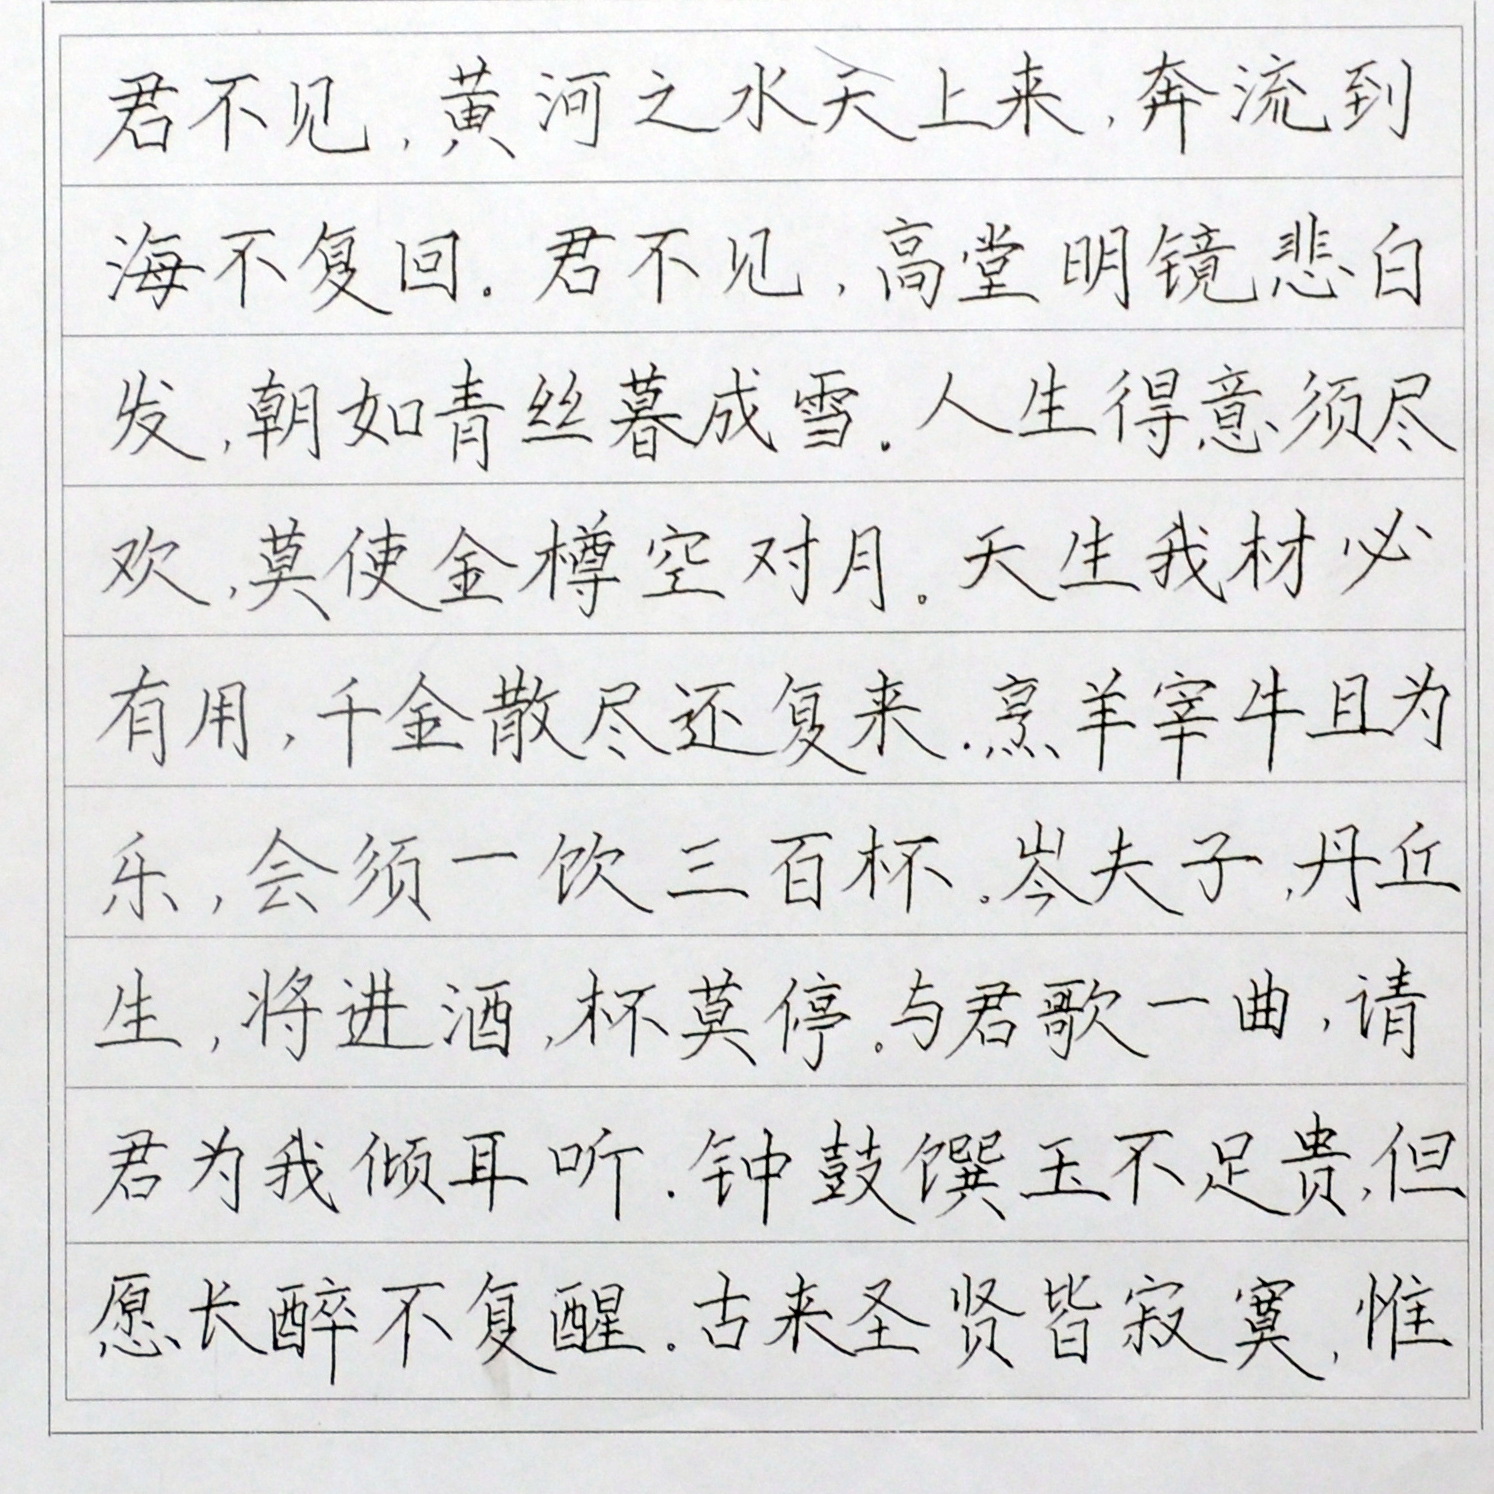 君不见,黄河之水天上来,奔流到
海不复回。君不见,高堂明镜悲白
发,朝如青丝暮成雪。人生得意须尽
欢,莫使金樽空对月。天生我材必
有用,千金散尽还复来.烹羊宰牛且为
乐,会须一饮三百杯。岑夫子,丹丘
生,将进酒,杯莫停。与君歌一曲,请
君为我倾耳听.钟鼓馔玉不足贵,但
愿长醉不复醒.古来圣贤皆寂寞,惟